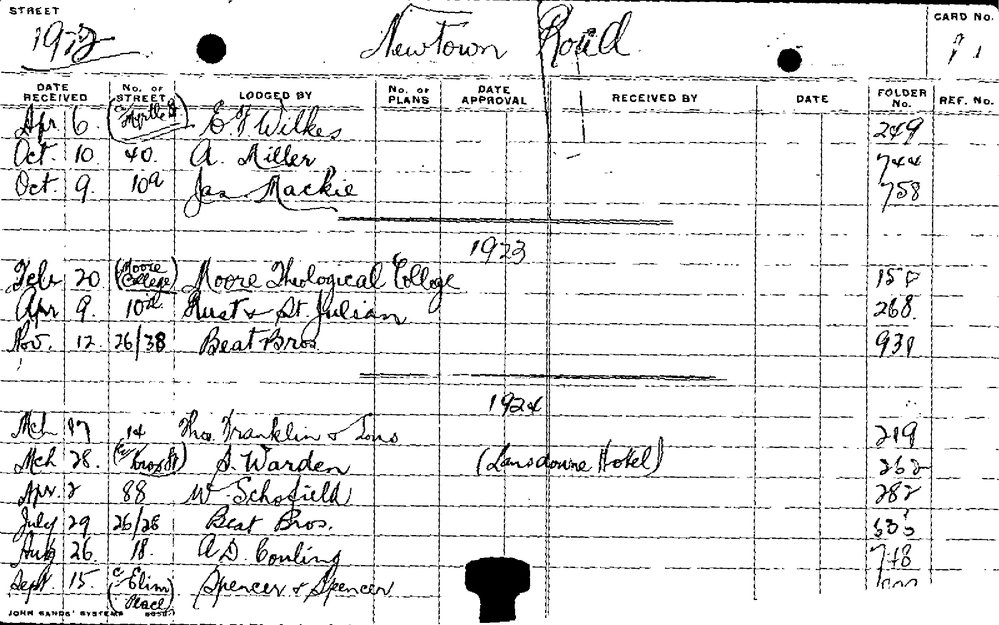 STREET
1922 Newtown Road
CARD No.
DATE RECEIVED No. OF STREET LODGED BY No. OF PLANS DATE APPROVAL RECEIVED BY DATE FOLDER No. REF. No.
Apr 6. (Cr Myrtle St) E F Wilkes 249
Oct. 10. 40. A. Miller 744
Oct. 9. 109 Jas. Mackie 758
1923
Feb 20 (Moore College) Moore Theological College
Apr 9. Rust & St. Julian 268.
Nov. 12. 26/38 Beat Bros.
1924
Mch 17 14 Thos. Franklin & Sons 219
Mch 28. S. Warden (Lansdowne Hotel) 262
Apr. 2 88 W Schofield 282
July 29 26/28 Beat Bros.
Aug 26. 18. A.D. Couling 748
Sept 15. (Cr Elim Place) Spencer & Spencer
JOHN SANDS' SYSTEMS